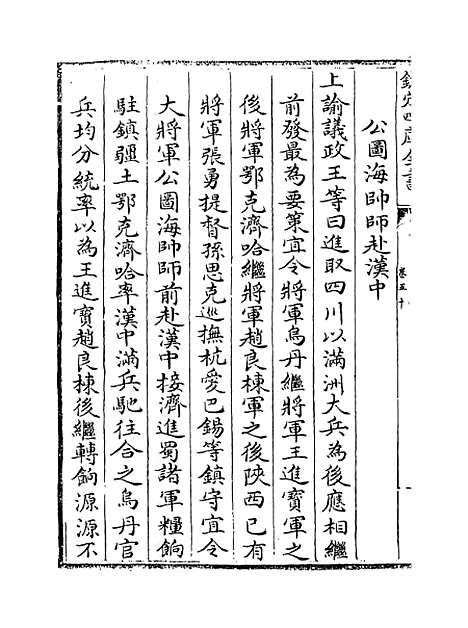 欽定四庫全書
卷五十
公圖海帥師赴漢中
上諭議政王等曰進取四川以滿洲大兵為後應相繼
前發最為要策宜令將軍烏丹繼將軍王進寶軍之
後將軍鄂克濟哈繼將軍趙良棟軍之後陜西已有
將軍張勇提督孫思克巡撫杭愛巴錫等鎮守宜令
大將軍公圖海帥師前赴漢中接濟進蜀諸軍糧餉
駐鎮疆土鄂克濟哈率漢中滿兵馳往合之烏丹官
兵均分統率以為王進寶趙良棟後繼轉餉源源不